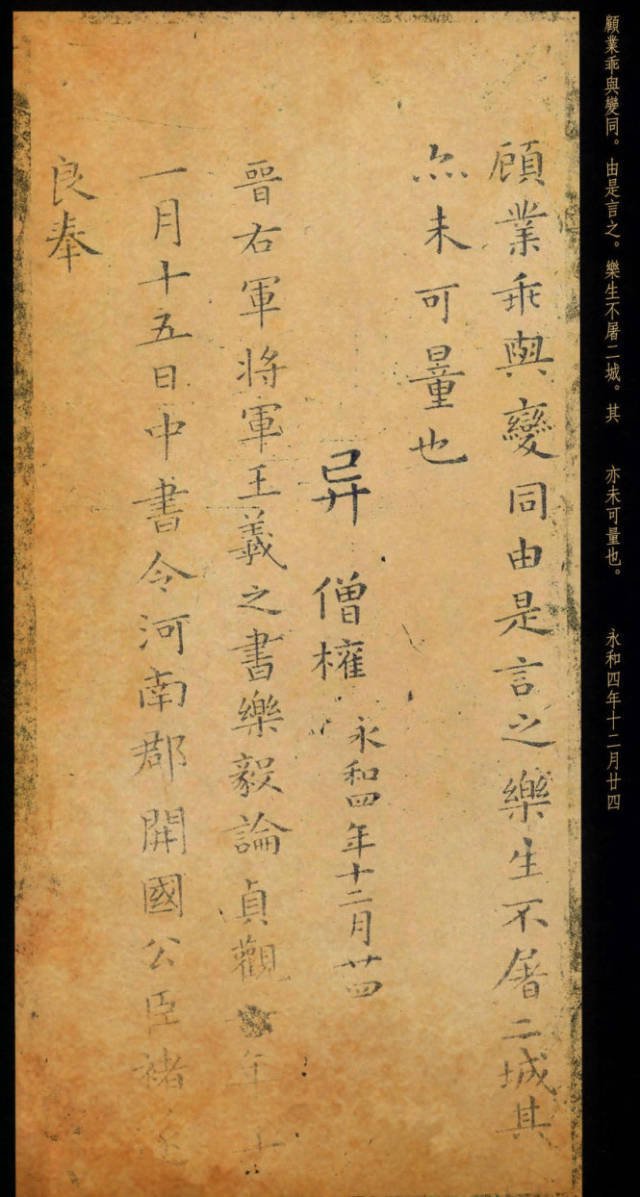 顧業乖與變同。由是言之。樂生不屠二城。其 亦未可量也。 永和四年十二月廿四
顧業乖與變同由是言之樂生不屠二城其
亦未可量也
永和四年十二月廿四
异 僧權
晉右軍將軍王羲之書樂毅論貞觀 年十
一月十五日中書令河南郡開國公臣褚遂
良奉